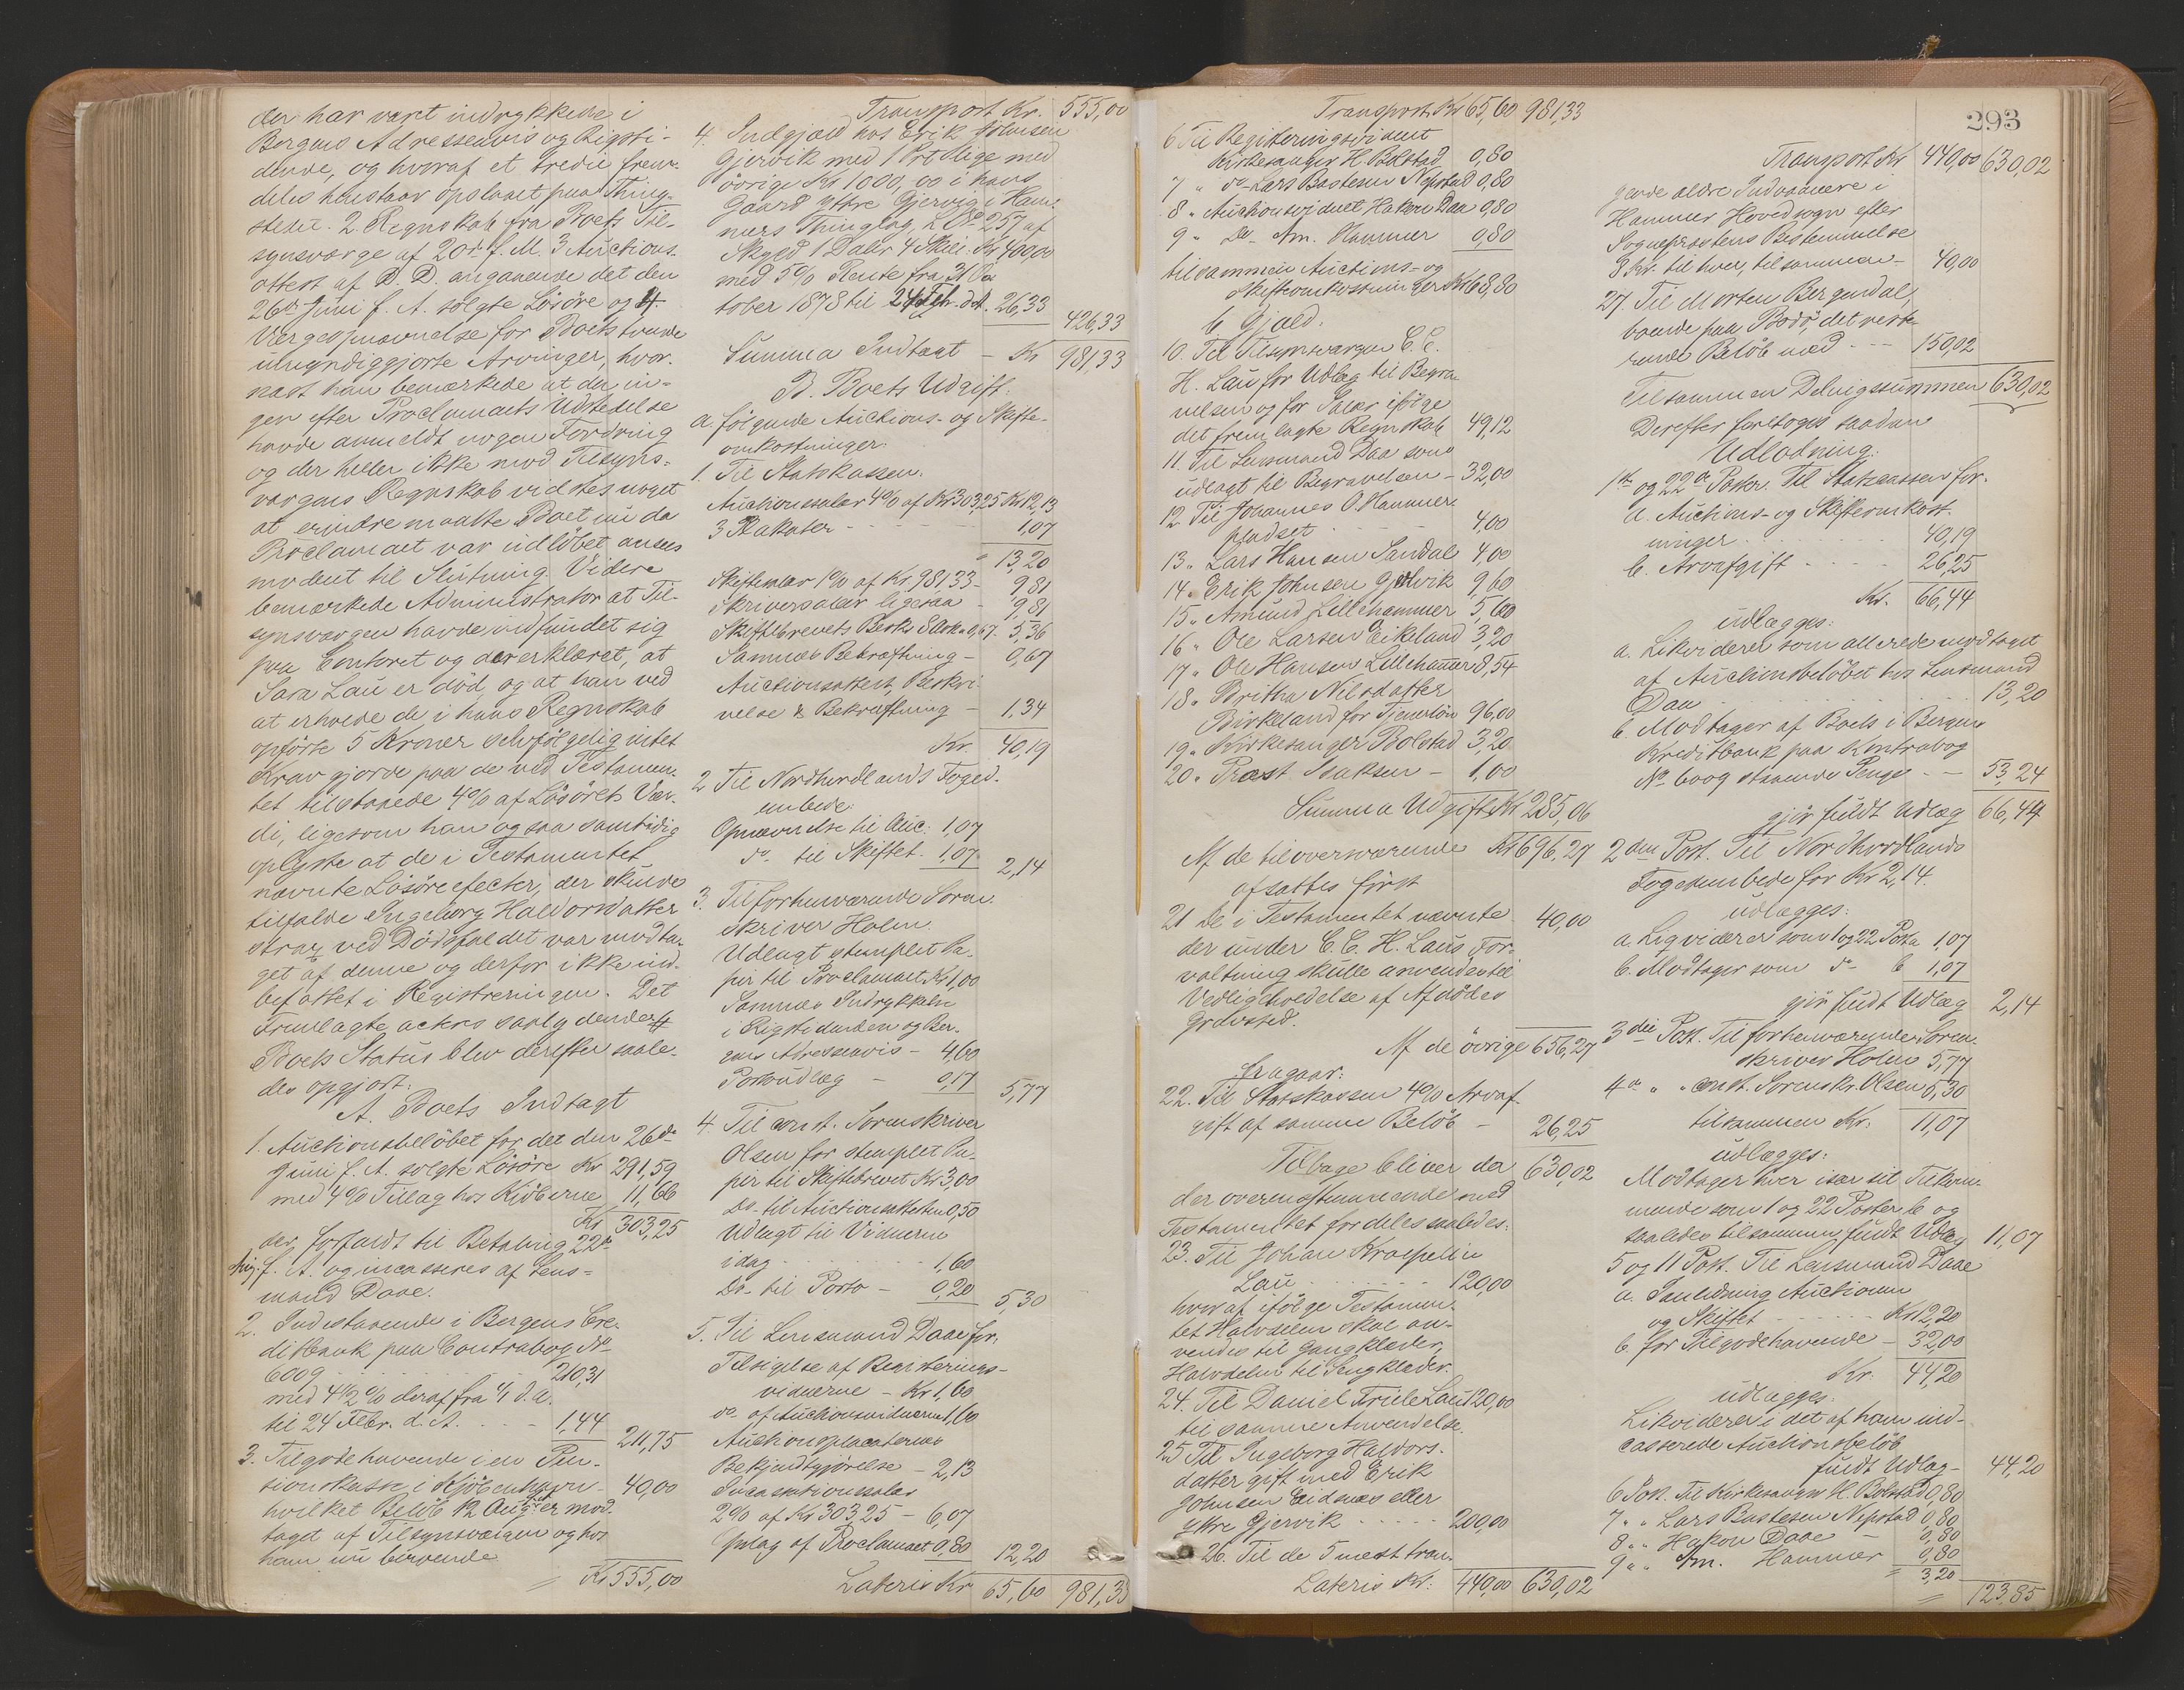 der har vært indrykkede i
Bergens Adresseavis og Rigsti-
dende, og hvoraf et tredie frem-
deles henstaar opslaaet paa Thing-
stedet. 2. Regnskab fra Boets Til-
synsværge af 20de f. M. 3 Auctions-
attest af D. D. angaaende det den
26de Juni f. A. solgte Løsøre og 4.
Værgeopnævnelse for Boets tvende
umyndiggjorte Arvinger, hvor-
næst han bemærkede at da in-
gen efter Proclamaets Udstedelse
havde anmeldt nogen Fordring
og der heller ikke mod Tilsyns-
værgens Regnskab vidstes noget
at erindre maatte Boet nu da
Proclamaet var udløbet ansees
modent til Slutning. Videre
bemærkede Administrator at Til-
synsværgen havde indfundet sig
paa Contoret og der erklæret, at
Sara Lau er død, og at han ved
at erholde de i hans Regnskab
opførte 5 Kroner selvfølgelig intet
Krav gjorde paa de ved Testamen-
tet tilstaaede 4% af Løsørets Vær-
di, ligesom han ogsaa samtidig
oplyste at de i Testamentet
nævnte Løsøreefecter, der skulde
tilfalde Ingeborg Haldorsdatter
strax ved Dødsfaldet var modta-
get af denne og derfor ikke ind-
befattet i Registreringen. Det
Fremlagte acteres saalydende
Boets Status blev derefter saale-
des opgjort:
A. Boets Indtægt
1. Auctionsbeløbet for det den 26de
Juni f. A. solgte Løsøre Kr 291,59
med 4% Tillæg hos Kjøberne 11,66
Kr 303,25
der forfaldt til Betaling 22de
f. A. og incasseres af Lens-
mand Daae.
2. Indestaaende i Bergens Cre-
ditbank paa Contrabog No
6009 210,31
med 4 1/2 % deraf fra 1/1 d. A.
til 24 Febr. d. A. 1,44
211,75
3. Tilgodehavende i en Pen-
sionskasse i Kjøbenhavn - 40,00
hvilket Beløb 12 Aug er mod-
taget af Tilsynsværgen og hos
ham nu beroende
Kr 555,00
Transport Kr. 555,00
4. Indgjæld hos Erik Johnsen
Gjervik med 1 Prt lige med
øvrige Kr 1000,00 i hans
Gaard Ytre Gjervig i Ham-
mers Thinglag, L No 257 af
Skyld 1 Daler 4 Skill. Kr 400,00
med 5% Rente fra 31 Oc
tober 1878 til 24 Feb. d.A. 26,33
426,33
Summa Indtægt - Kr 981,33
B. Boets Udgift.
a. følgende Auctions- og Skifte-
omkostninger.
1. Til Statskassen.
Auctionssalær 4% af Kr 303,25 Kr 12,13
3 Plakater 1,07
13,20
Skiftesalær 1% af Kr. 981,33 - 9,81
Skriversalær ligesaa - 9,81
Skiftebrevets Beskr. 8 Ark a 0,67. 5,36
Sammes Bekræftning - 0,67
Auctionsattest, Beskri-
velse & Bekræftning - 1,34
Kr. 40,19
2 Til Nordhordlands Foged-
embede:
Opnævnelse til Auc. 1,07
do til Skiftet. 1,07
2,14
3. Til forhenværende Soren-
skriver Holm.
Udlagt stemplet Pa-
pir til Proclamaet Kr 1,00
Sammes Indrykkelse
i Rigstidenden og Ber-
gens Adresseavis - 4,60
Portoudlæg - 0,17
5,77
4. Til const. Sorenskriver
Olsen for stemplet Pa-
pir til Skiftebrevet Kr 3,00
Do til Auctionsattesten 0,50
Udlagt til Vidnerne
idag 1,60
Do til Porto - 0,20
5,30
5. Til Lensmand Daae for.
Tilsigelse af Registrerings-
vidnerne - Kr 1,60
do af Auctionsvidnerne 1,60
Auctionsplacaternes
Bekjendtgjørelse - 2,13
Incassationssalær
2% af Kr 303,25 - 6,07
Oplæg af Proclamaet 0,80
12,20
Lateris Kr 65,60 981,33
Transport Kr 65,60 981,33
6 Til Registeringsvidnet
Kirkesanger H. Bolstad 0,80
7 " do Lars Bastesen Nepstad 0,80
8 " Auctionsvidnet Hakon Daa 0,80
9 " Do Am. Hammer 0,80
tilsammen Auctions- og
Skifteomkostninger Kr 68,80
b. Gjæld.
10. Til Tilsynsværgen C. C.
H. Lau for Udlæg til Begra-
velsen og for Salær ifølge
det fremlagte Regnskab 49,12
11. Til Lensmand Daa som
udlagt til Begravelsen - 32,00
12 Til Johannes O. Hammer-
pladset 4,00
13 " Lars Hansen Sandal 4,00
14 " Erik Johnsen Gjervik 9,60
15 " Amund Lillehammer 5,60
16 " Ole Larsen Eikeland 3,20
17 " Ole Hansen Lillehammer 8,54
18 " Britha Nilsdatter
Birkeland for Tjenerløn 96,00
19 " Kirkesanger Bolstad 3,20
20 " Præst Isaksen - 1,00
Summa Udgifts Kr 285,06
Af de tiloversværende Kr 696,27
afsattes først
21 De i Testamentet nævnte 40,00
der under C. C. H. Laus For-
valtning skulle anvendes til
Vedligeholdelse af Afdødes
Gravsted.
Af de øvrige 656,27
fragaar:
22. Til Statskassen 4% Arvaf-
gift af samme Beløb - 26,25
Tilbage bliver da 630,02
der overensstemmende med
Testamentet fordeles saaledes:
23. Til Johan Kraepelin
Lau 120,00
hvoraf ifølge Testamen-
tet Halvdelen skal an-
vendes til Gangklæder,
Halvdelen til Sengklæder.
24. Til Daniel Friele Lau 120,00
til samme Anvendelse.
25 Til Ingeborg Haldors-
datter gift med Erik
Johnsen Eidsnes eller
Ytre Gjervik 200,00
26. Til de 5 mest tran-
Lateris Kr. 440,00 630,02
293
Transport Kr 440,00 630,02
gende ældre Indvaanere i
Hammer Hovedsogn efter
Sognepræstens Bestemmelse
8 Kr. til hver, tilsammen - 40,00
27. Til Morten Bergendal,
boende paa Bodø, det reste-
rende Beløb med - 150,02
Tilsammen Delingssummen 630,02
Derefter foretoges saadan
Udlodning:
1ste og 22de Poster. Til Statskassen for.
a. Auctions- og Skifteomkost-
ninger 40,19
b. Arvafgift 26,25
Kr. 66,44
udlægges:
a. Likviderer som allerede modtaget
af Auctionsbeløbet hos Lensmand
Daa 13,20
b. Modtager af Boets i Bergens
Kreditbank paa Kontrabog
No 6009 staaende Penge - 53,24
gjør fuldt Udlæg 66,44
2den Post. Til Nordhordlands
Fogedembede for Kr 2,14.
udlægges:
a Liqviderer som 1 og 22 Post a 1,07
b. Modtager som do b 1,07
gjør fuldt Udlæg 2,14
3die Post. Til forhenværende Soren-
skriver Holm 5,77
4de " " const. Sorenskr. Olsen 5,30
tilsammen Kr. 11,07
udlægges:
Modtager hver især sit Tilkom-
mende som 1 og 22 Poster b og
saaledes tilsammen fuldt Udlæg 11,07
5 og 11 Post. Til Lensmand Daae
a. I anledning Auctionen
og Skiftet Kr 12,20
b. for Tilgodehavende - 32,00
Kr. 44,20
udlægges:
Likviderer i det af ham ind-
casserede Auctionsbeløb
fuldt Udlæg - 44,20
6 Post. Til Kirkesanger H. Bolstad 0,80
7 " " Lars Bastesen Nepstad 0,80
8 " " Hakon Daae - 0,80
9 " " Am. Hammer 0,80
3,20
123,85